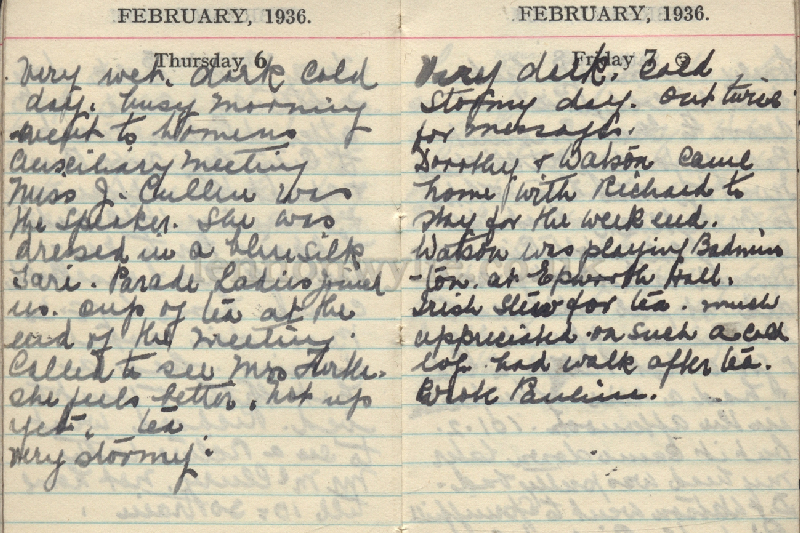 FEBRUARY, 1936.
Thursday 6
Very wet, dark cold
day. busy morning
went to Womens
Auxiliary Meeting
Miss J. Cullen was
the speaker. She was
dressed in a blue silk
Sari. Parade Ladies joined
us. cup of tea at the
end of the meeting.
Called to see Mrs
she feels better, not up
yet. tea
Very stormy.
FEBRUARY, 1936.
Friday 7
Very dark, cold
Stormy day. out twice
for messages.
Dorothy & Watson came
home with Richard to
stay for the week end.
Watson was playing Badmin
-ton. at Epworth Hall.
Irish Stew for tea. much
appreciated on such a cold
day. had walk after tea.
Wrote Pauline.